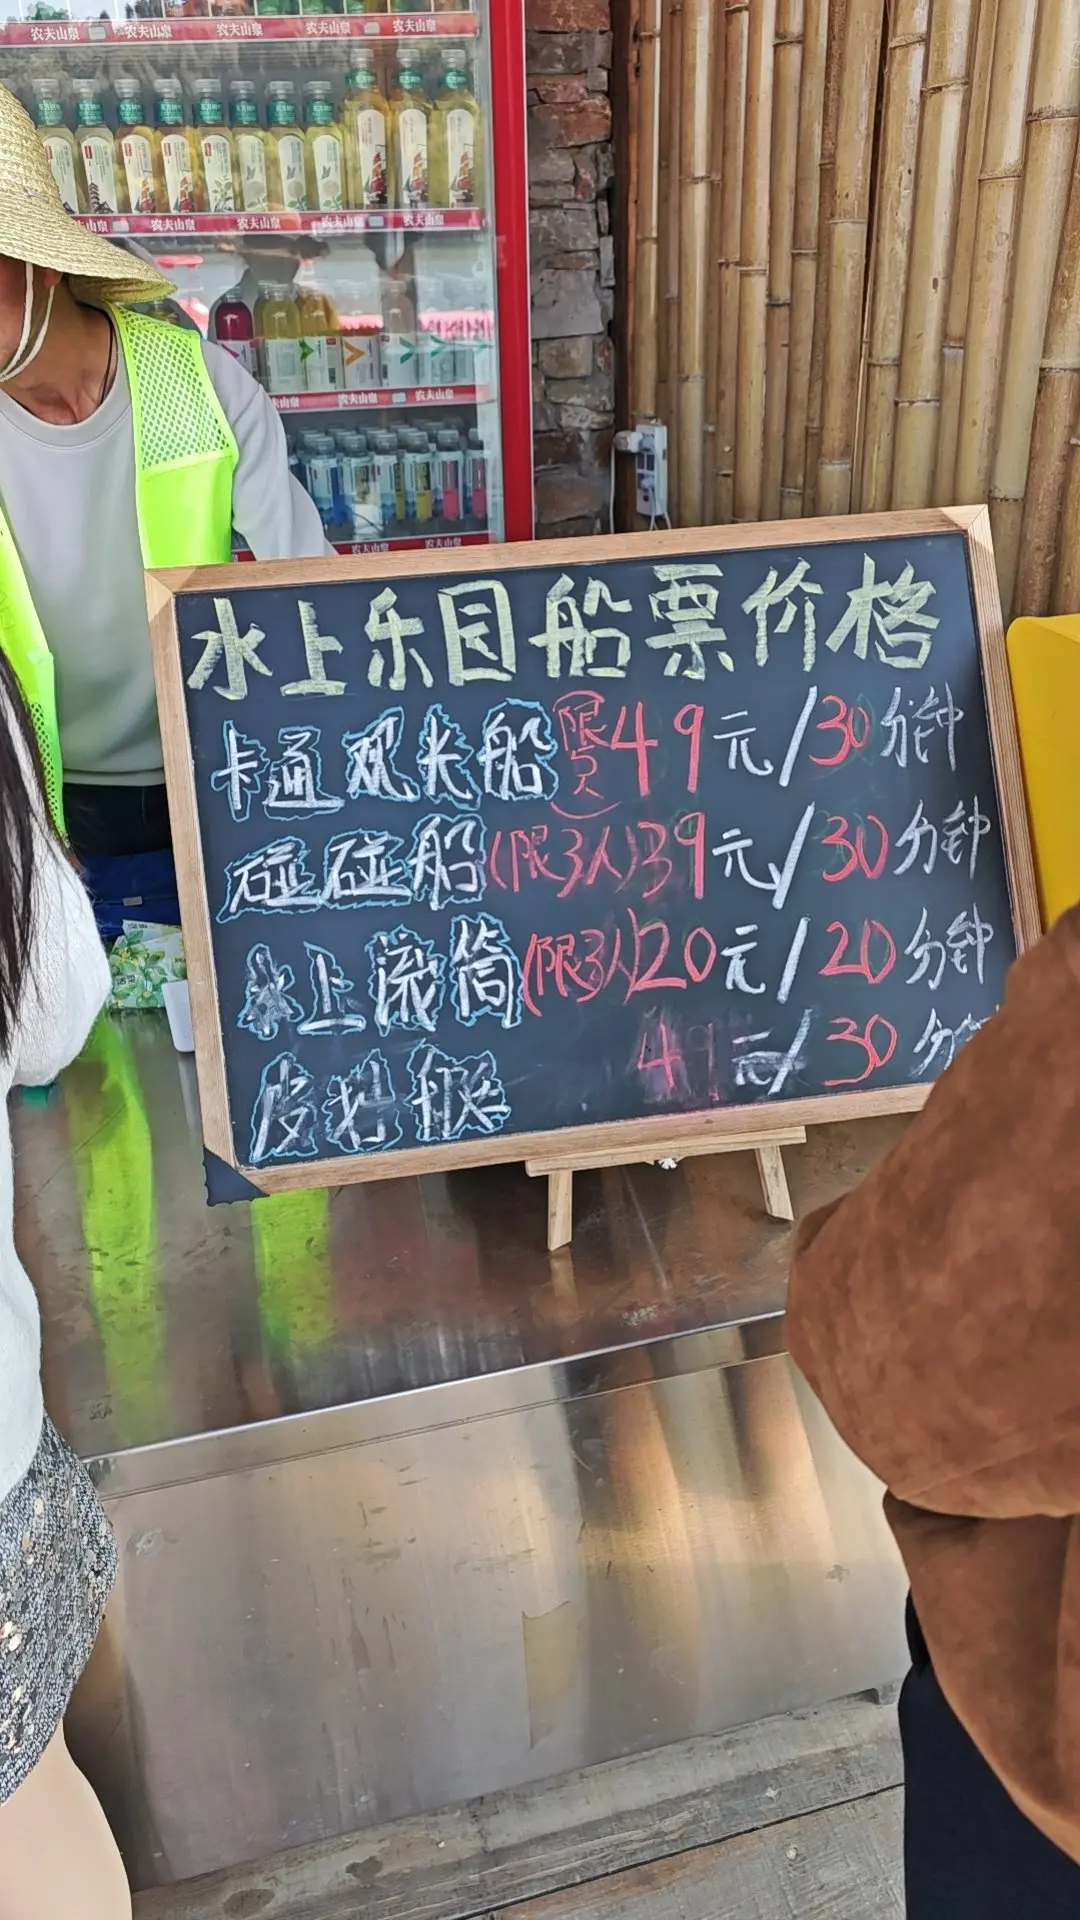 农夫山泉 农夫山泉 农夫山泉 农夫山泉 农夫山泉
农夫山泉 农夫山泉 农夫山泉
农夫山泉 农夫山泉
农夫山泉 农夫山泉
水上乐园船票价格
卡通观光船 49元/30分钟
碰碰船(限3人)39元/30分钟
水上滚筒(限3人)20元/20分钟
皮划艇 49元/30分钟